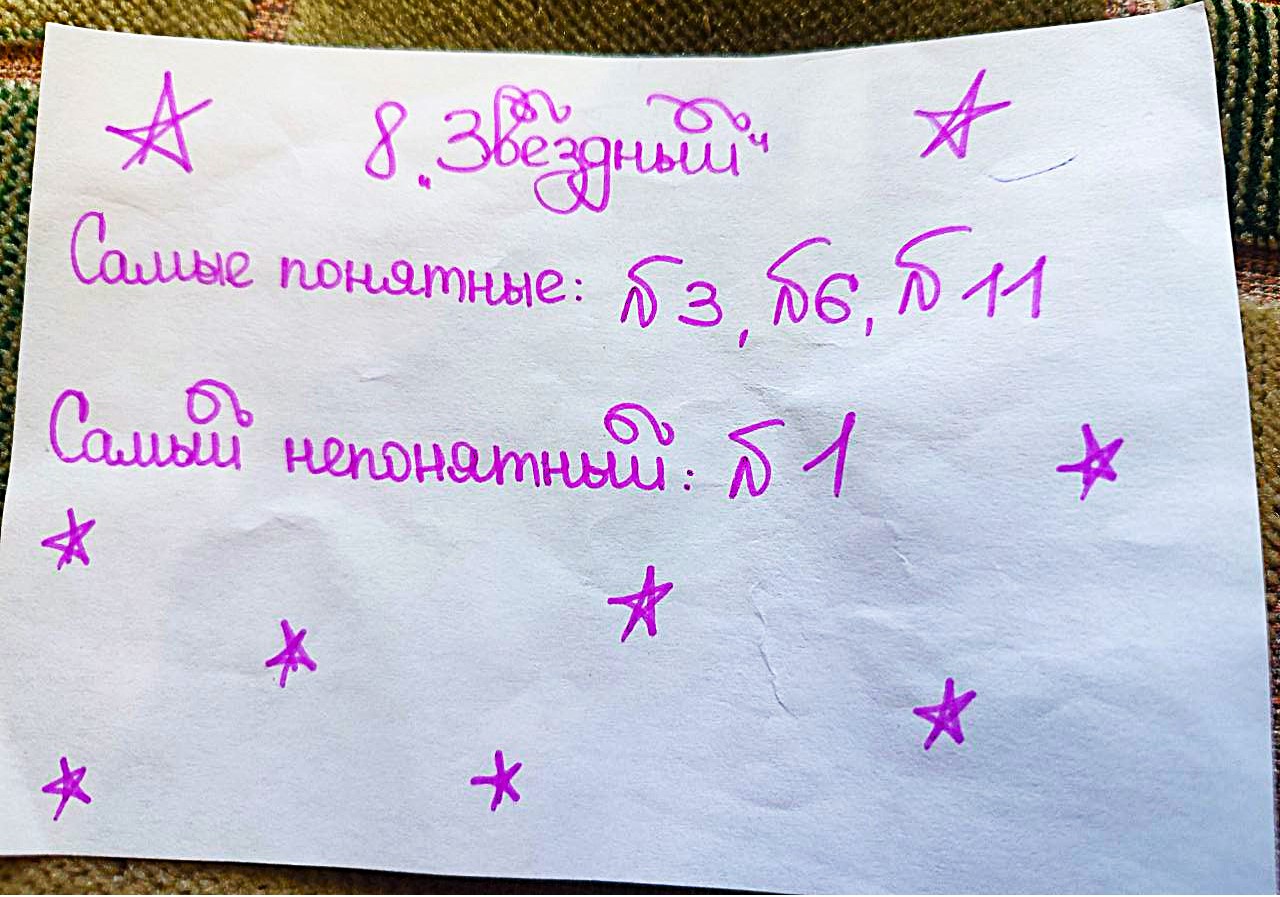 8 „Звёздный“
Самые понятные: №3, №6, №11
Самый непонятный: №1